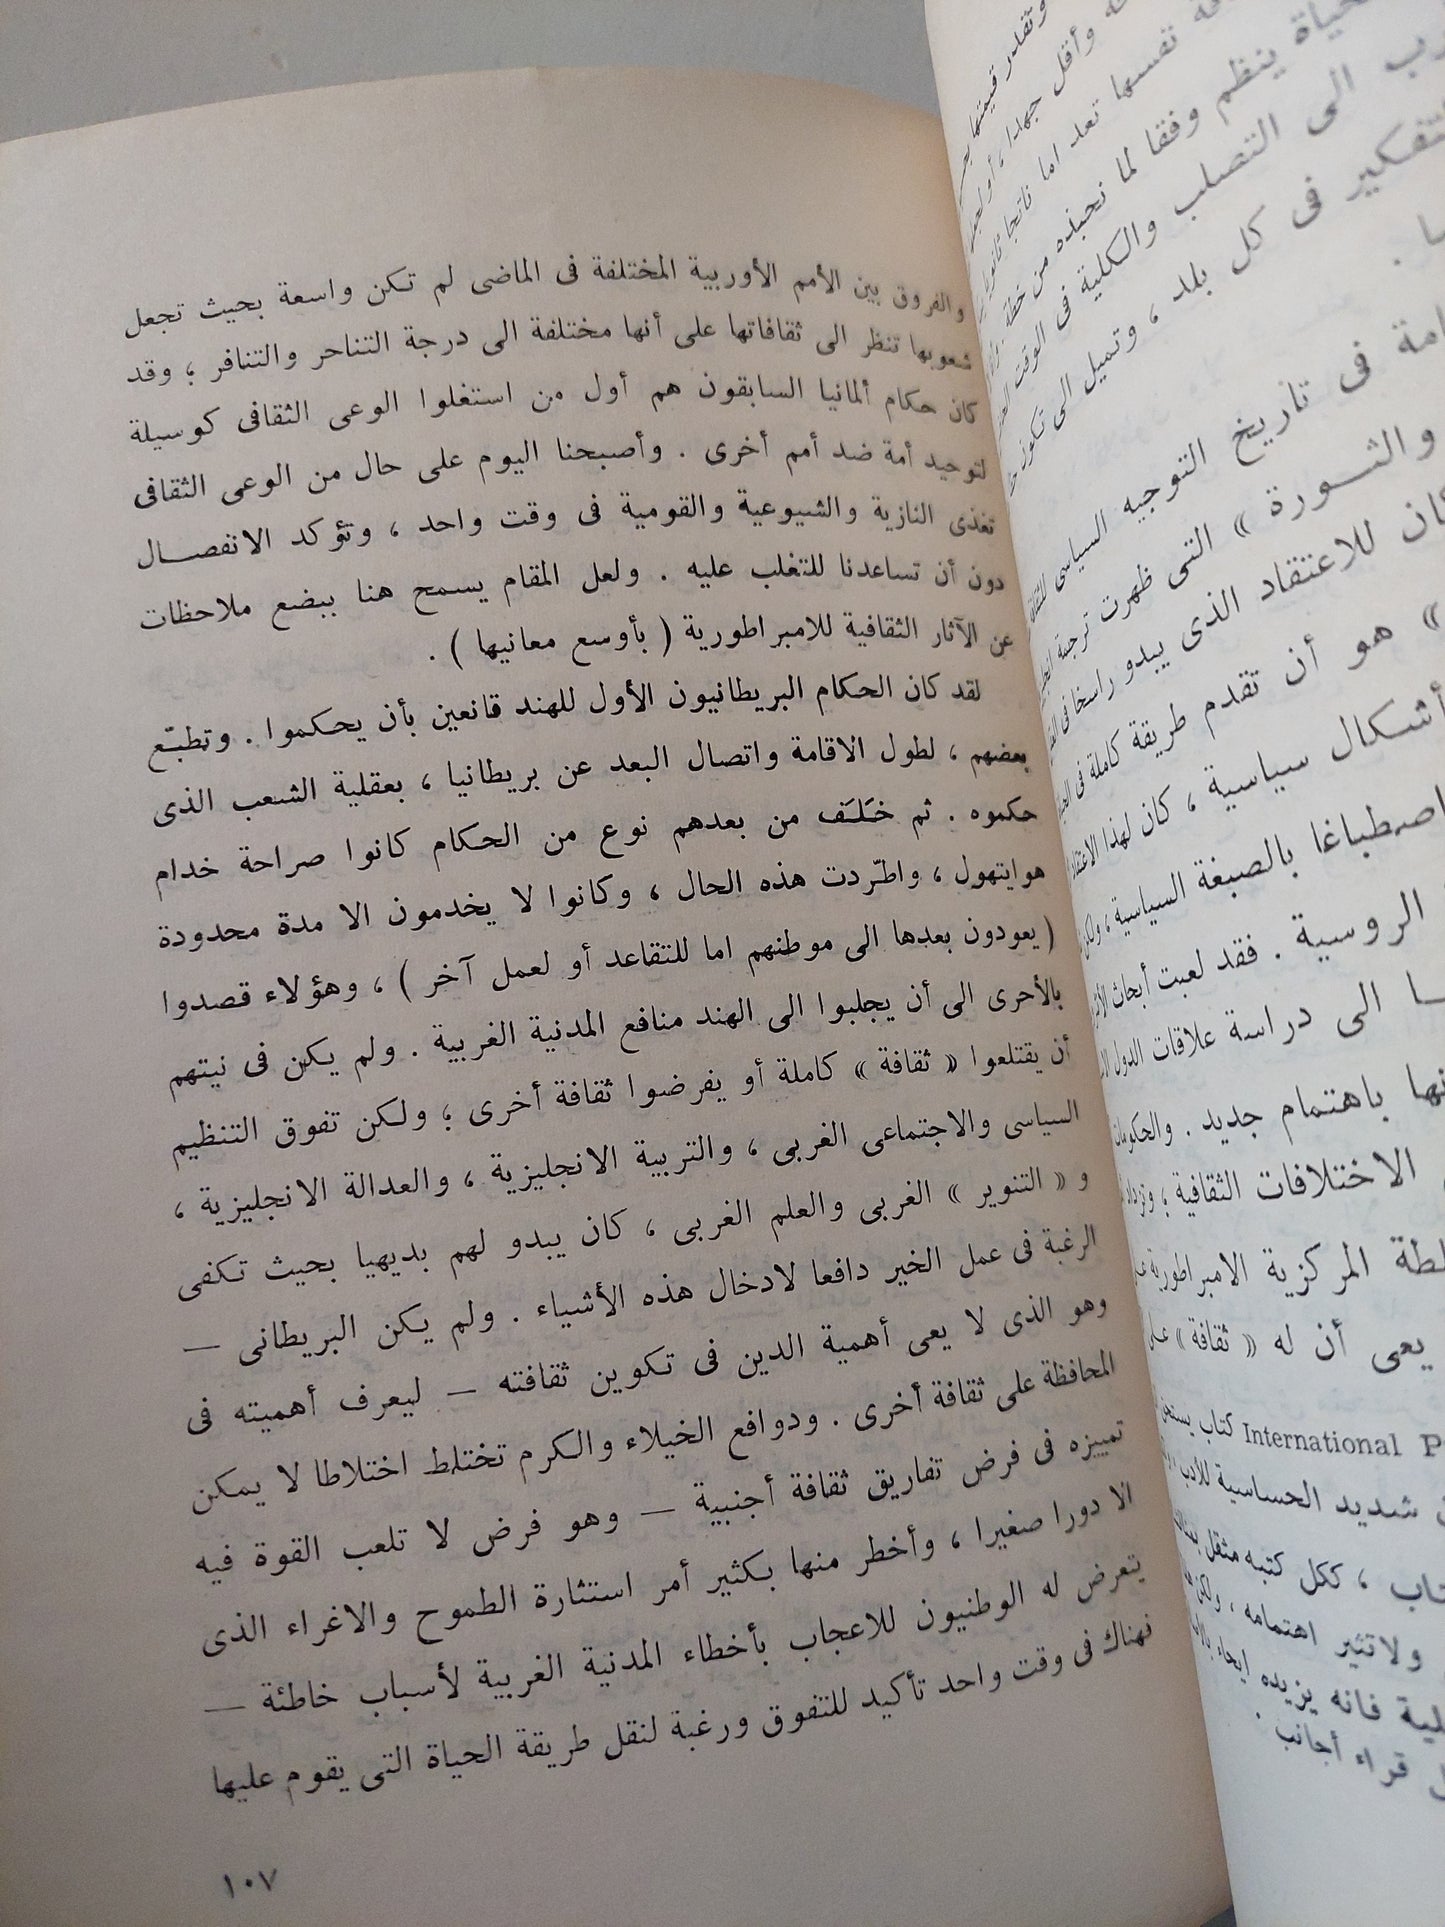 والفروق بين الأمم الأوربية المختلفة فى الماضى لم تكن واسعة بحيث تجعل
شعوبها تنظر الى ثقافاتها على أنها مختلفة الى درجة التناحر والتنافر ؛ وقد
كان حكام ألمانيا السابقون هم أول من استغلوا الوعى الثقافى كوسيلة
لتوحيد أمة ضد أمم أخرى . وأصبحنا اليوم على حال من الوعى الثقافى
تغذى النازية والشيوعية والقومية فى وقت واحد ، وتؤكد الانفصـــال
دون أن تساعدنا للتغلب عليه . ولعل المقام يسمح هنا ببضع ملاحظات
عن الآثار الثقافية للامبراطورية ( بأوسع معانيها ) .
لقد كان الحكام البريطانيون الأول للهند قانعين بأن يحكموا . وتطبّع
بعضهم ، لطول الاقامة واتصال البعد عن بريطانيا ، بعقلية الشعب الذى
حكموه . ثم خَلَف من بعدهم نوع من الحكام كانوا صراحة خدام
هوايتهول ، واطّردت هذه الحال ، وكانوا لا يخدمون الا مدة محدودة
( يعودون بعدها الى موطنهم اما للتقاعد أو لعمل آخر ) ، وهؤلاء قصدوا
بالأحرى الى أن يجلبوا الى الهند منافع المدنية الغربية . ولم يكن فى نيتهم
أن يقتلعوا « ثقافة » كاملة أو يفرضوا ثقافة أخرى ؛ ولكن تفوق التنظيم
السياسى والاجتماعى الغربى ، والتربية الانجليزية ، والعدالة الانجليزية ،
و « التنوير » الغربى والعلم الغربى ، كان يبدو لهم بديهيا بحيث تكفى
الرغبة فى عمل الخير دافعا لادخال هذه الأشياء . ولم يكن البريطانى —
وهو الذى لا يعى أهمية الدين فى تكوين ثقافته — ليعرف أهميته فى
المحافظة على ثقافة أخرى . ودوافع الخيلاء والكرم تختلط اختلاطا لا يمكن
تمييزه فى فرض تفاريق ثقافة أجنبية — وهو فرض لا تلعب القوة فيه
الا دورا صغيرا ، وأخطر منها بكثير أمر استثارة الطموح والاغراء الذى
يتعرض له الوطنيون للاعجاب بأخطاء المدنية الغربية لأسباب خاطئة —
فهناك فى وقت واحد تأكيد للتفوق ورغبة لنقل طريقة الحياة التى يقوم عليها
١٠٧
وتقدر قيمتها
وأقل جهدا ، أو
نفسها تعد اما ناتجا ثانويا
ينظم وفقا لما نحبذه من خطة
الى التصلب والكلية فى الوقت
فى كل بلد ، وتميل الى
فى تاريخ التوجيه السياسى
والثــورة » التى ظهرت ترجمة
للاعتقاد الذى يبدو راسخا فى
» هو أن تقدم طريقة كاملة فى
أشكال سياسية ، كان لهذا
اصطباغا بالصبغة السياسية ،
الروسية . فقد لعبت أبحاث
الى دراسة علاقات الدول
باهتمام جديد . والحكومات
الاختلافات الثقافية ؛
المركزية الامبراطورية
يعى أن له « ثقافة »
International كتاب يستحق
شديد الحساسية للأدب
، ككل كتبه مثقل
ولا تثير اهتمامه ،
فانه يزيده
قراء أجانب .